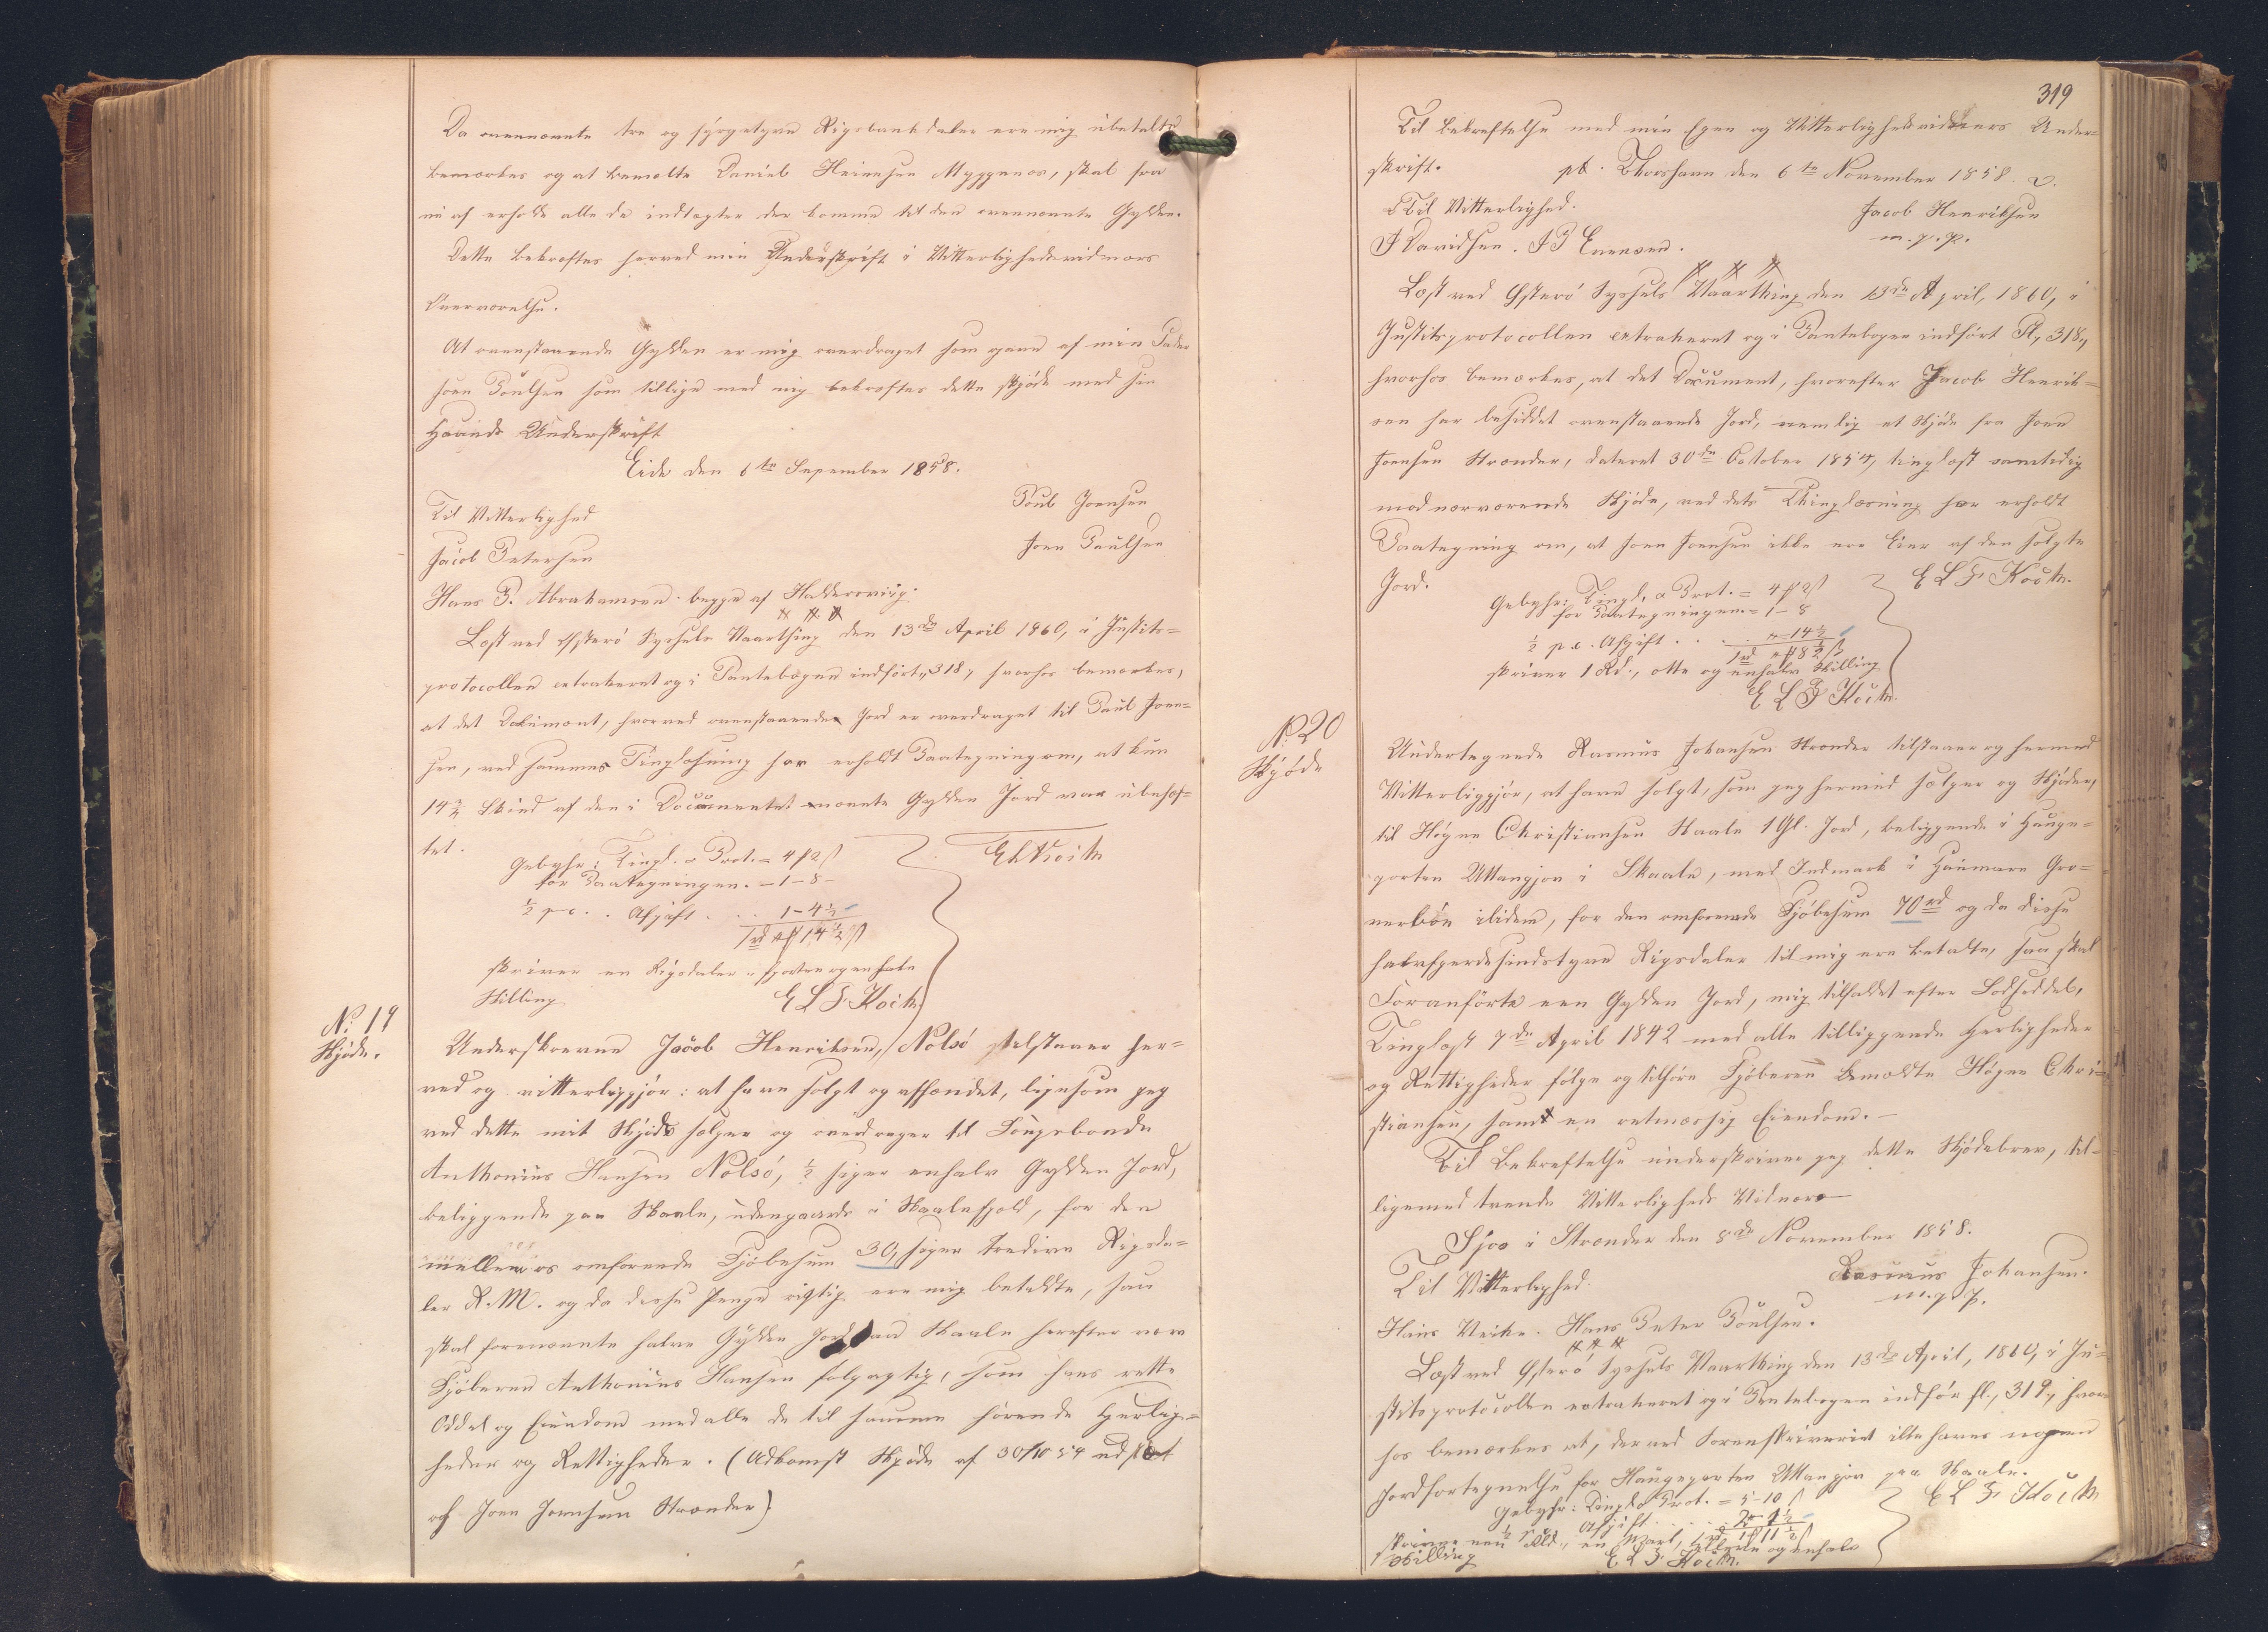 Da ovennævnte tre og syvgetyve Rigsbankdaler ere mig ubetalte
bemærkes og at bemelte Daniel Heinesen Myggenæs, skal fra
nu af erholde alle de indtægter der komme til den ovennævnte Gylden.
Dette bekræftes herved min Underskrift i Vitterlighedsvidners
Overværelse.
At ovenstaaende Gylden er mig overdraget som gave af min Fader
Joen Poulsen som tillige med mig bekræftes dette skjøde med sin
Haands Underskrift
Eide den 6te September 1858.
Til Vitterlighed
Poul Joensen
Jacob Petersen
Joen Poulsen
Hans P. Abrahamsen. begge af Haldersviig.
Læst ved Østerö Syssels Vaarthing den 13de April 1860, i Justits=
protocollen extraheret og i Pantebogen indført, 318, hvorhos bemærkes,
at det Document, hvorved ovenstaaende Jord er overdraget til Poul Joen=
sen, ved sammes Tinglæsning har erholdt Paategning om, at kun
14½ Skind af den i Documentet nævnte Gylden Jord var ubehæf=
tet.
Gebyhr: Tingl. o Prot. = 4 f 2 ß
for Paategningen. - 1 - 8 -
½ p. c. . Afgift . . . 1 - 4½
1 rd 14½ ß
E L F Koch
skriver en Rigsdaler fjorten og en halv
Skilling
E L F. Koch
N: 19
Skjøde.
Underskrevne Jacob Henriksen, Nolsö tilstaaer her=
ved og vitterliggjør: at have solgt og afhændet, ligesom jeg
ved dette mit Skjøde sælger og overdrager til Kongsbonde
Anthonius Hansen Nolsö, ½ siger enhalv Gylden Jord,
beliggende paa Skaale, udengaards i Skaalefjold, for den
mellem os omforende Kjøbesum 30, siger tredive Rigsda=
ler R.M. og da disse Penge rigtig ere mig betalte, saa
skal forenævnte halve Gylden Jord paa Skaale herefter være
Kjøberen Anthonius Hansen følgagtig, som hans rette
Oddel og Eiendom med alle de til samme hørende Herlig=
heder og Rettigheder. (Adkomst Skjøde af 30/10 54 udstæt
af Joen Joensen Strænder)
319
Til bekræftelse med min Egen og Vitterlighedsvidners Under=
skrift.
pt. Thorshavn den 6te November 1858.
Til Vitterlighed.
Jacob Henriksen
J Davidsen. J P Evensen.
m. p. p.
Læst ved Østerö Syssels Vaarthing den 13de April, 1860, i
Justitsprotocollen extraheret og i Pantebogen indført Fl, 318,
hvorhos bemærkes, at det Document, hvorefter Jacob Henrik=
sen har besiddet ovenstaaende Jord, nemlig et Skjøde fra Joen
Joensen Strænder, dateret 30de October 1854, tinglæst samtidig
med nærværende Skjøde, ved dets Thinglæsning har erholdt
Paategning om, at Joen Joensen ikke var Eier af den solgte
Jord.
Gebyhr: Tingl. o Prot. = 4 f 2 ß
for Paategningen = 1 - 8
½ p. c. Afgift . . . " - 14½
1 rd " f 8½ ß
E L F Koch.
skriver 1 Rd., otte og enhalv Skilling
E L F Koch.
N. 20
Skjøde
Undertegnede Rasmus Johansen Strænder tilstaaer og hermed
Vitterliggjør, at have solgt, som jeg hermed sælger og Skjøder,
til Högne Christiansen Skaale 1 Gl. Jord, beliggende i Hauge=
parten Uttangjov i Skaale, med Indmark i Heimare Gro=
nerbön ibidem, for den omforende Kjøbesum 70 rd og da disse
halvfjerdesindstyve Rigsdaler til mig ere betalte, saa skal
Foranførte een Gylden Jord, mig tilfaldet efter Lodseddel,
Tinglæst 7de April 1842 med alle tilliggende Herligheder
og Rettigheder følge og tilhøre Kjøberen bemældte Högne Chri=
stiansen, samt en retmæssig Eiendom. —
Til Bekræftelse underskriver jeg dette Skjødebrev, til=
ligemed tvende Vitterligheds Vidner
Sjov i Strænder den 8de November 1858.
Til Vitterlighed.
Rasmus Johansen.
m. p. p.
Hans Veihe. Hans Peter Poulsen.
Læst ved Østerö Syssels Vaarthing den 13de April, 1860, i Ju=
stitsprotocollen extraheret og i Pantebogen indfør fl., 319, hvor
hos bemærkes at, der ved Sorenskriveriet ikke haves nogen
Jordfortegnelse for Haugeparten Uttangjov paa Skaale.
Gebyhr: Tingl. o Prot. = 5 - 10 ß
½ Afgift . . . . 2 - 1½
1 rd 1 f 11½ ß
E L F Koch
skriver een Rd., en Mark, Elleve og enhalv
Skilling
E L F Koch.